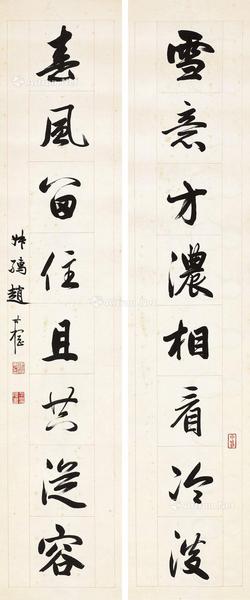 雪意才濃相看冷淡
春風留住且共從容
叔孺趙時棡